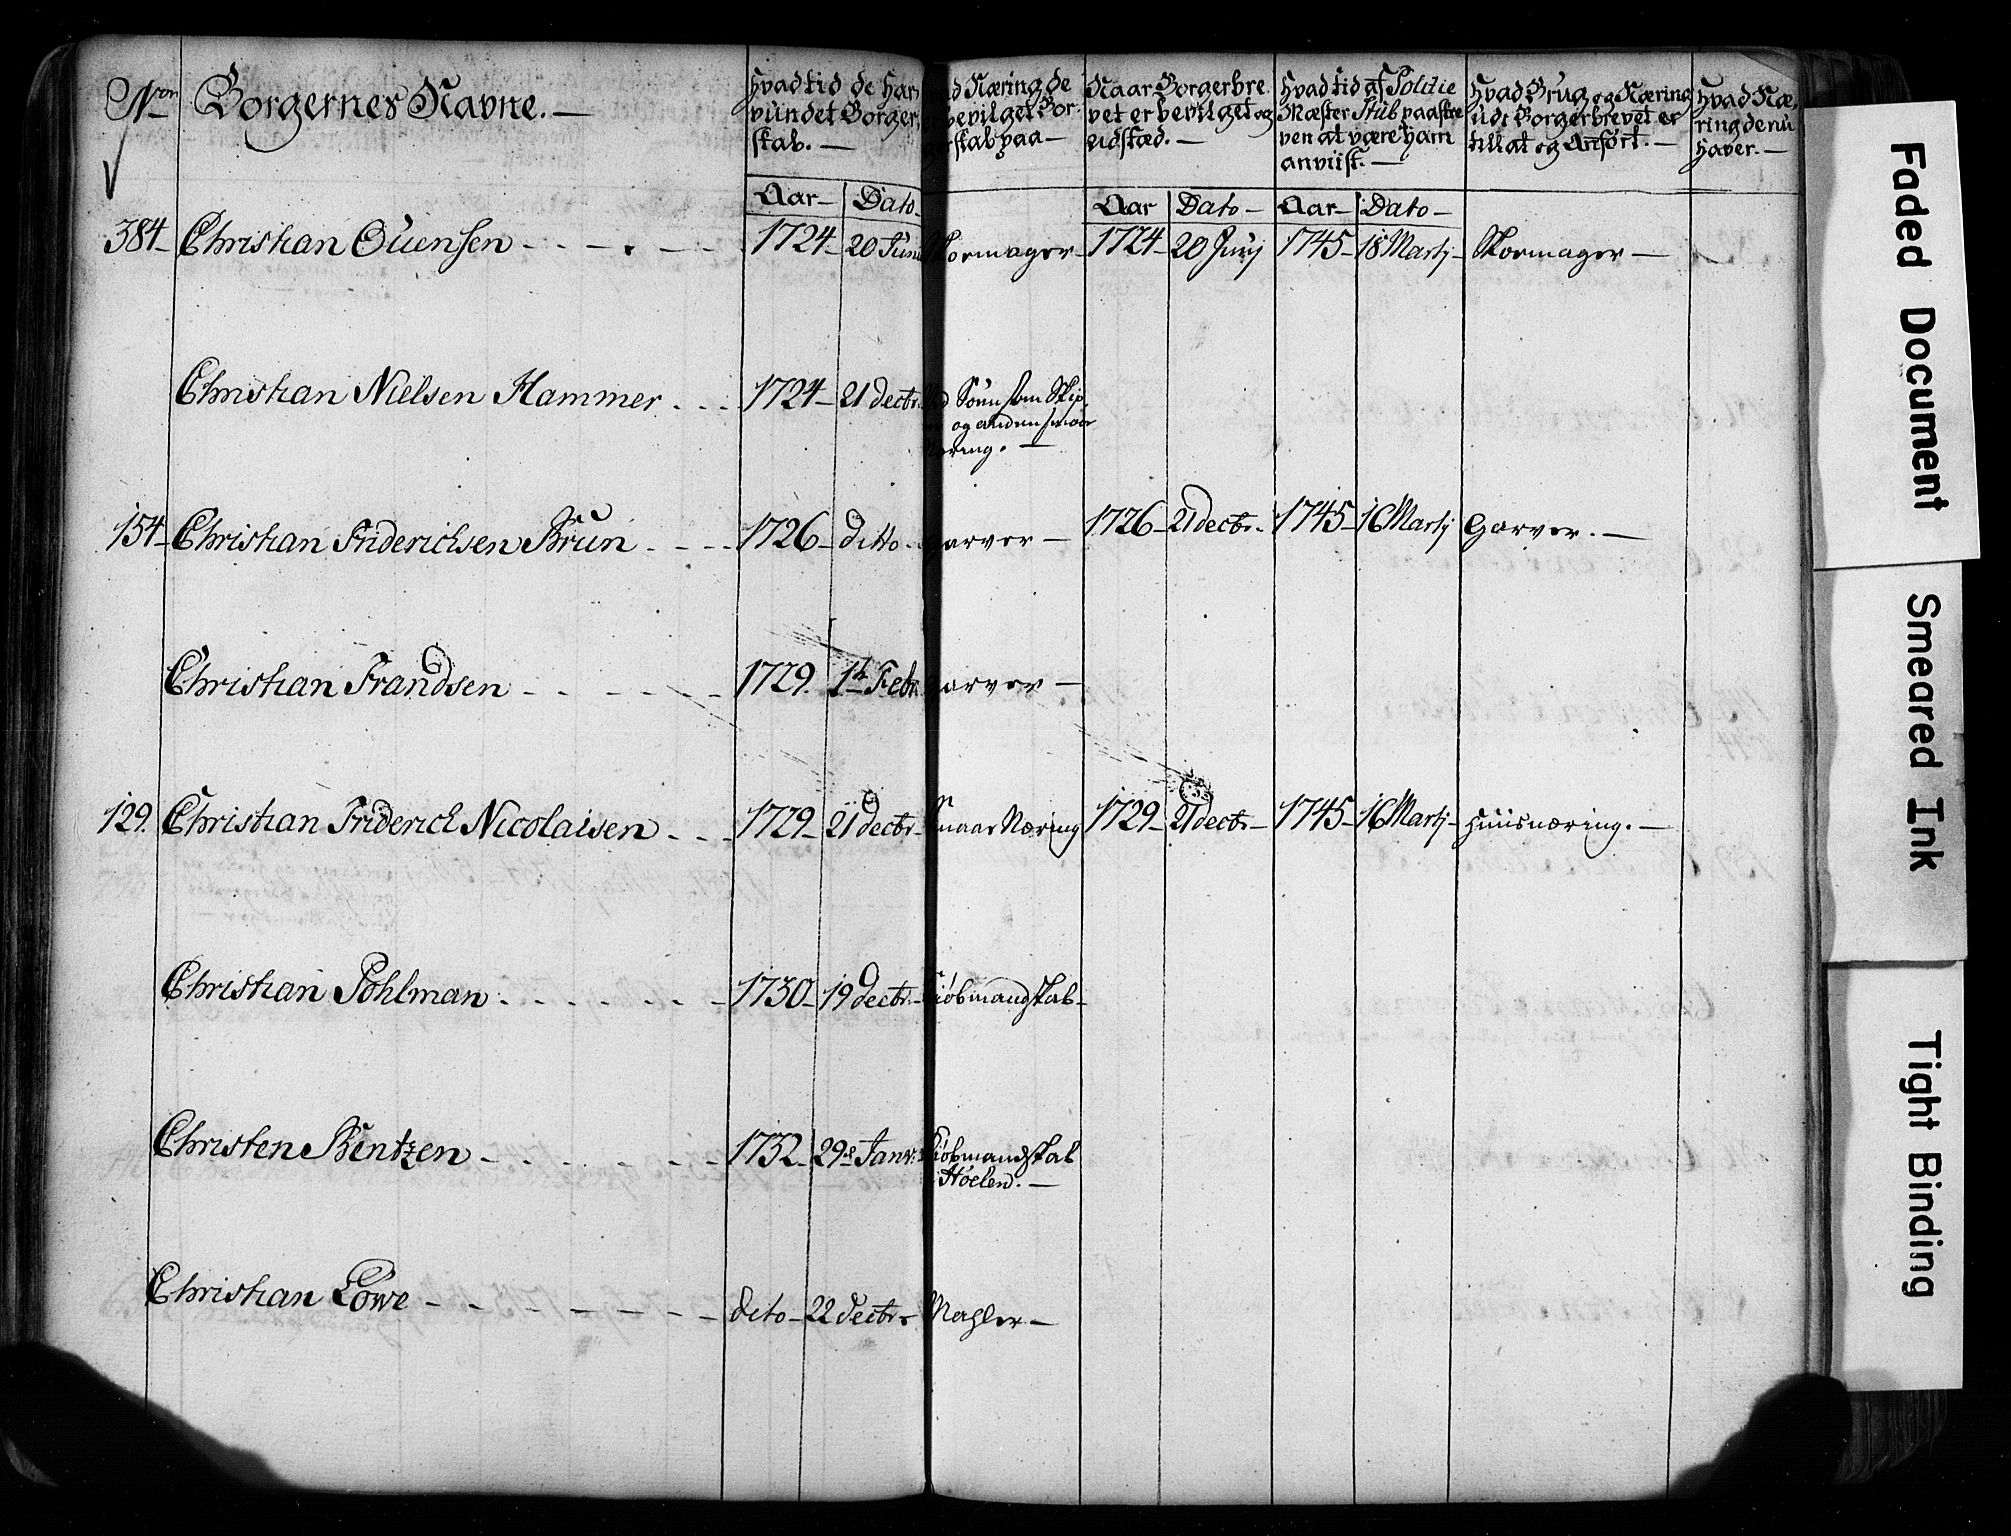 Nron Borgernes Navne. —
Hvad tid de har
vundet Borger-
skab. —
Næring de
bevilget Bor-
skab paa —
Naar Borgerbre
vet er bevilget og
udstæd. —
Hvad tid af Politie
Mæster Stub paaskre
ven at være ham
anviist. —
Hvad Brug og Næring
udi Borgerbrevet er
tillat og Anført. —
Hvad Næ-
ring de nu
haver. —
Aar — Dato — Aar Dato — Aar — Dato —
384 — Christian Ouensen - - - . - - - 1724 — 20 Juni Skormager — 1724 — 20 Junj 1745 — 18 Martj — Skormager —
Christian Nielsen Hammer . - - 1724 — 21 decbr. Søun som Skip
og anden smaa
Næring. —
154 — Christian Friderichsen Brun . - - - 1726 — ditto . Garver — 1726 — 21 decbr. — 1745 — 16 Martj Garver. —
Christian Frandsen - - - - - - 1729. 1te Febr. Garver —
129. Christian Friderich Nicolaisen . - - 1729 — 21 decbr — Smaar Næring 1729 — 21 decbr — 1745 — 16 Martj — Huusnæring. —
Christian Pohlman . - . - . - . - 1730 — 19 decbr. — Kiøbmandskab —
Christen Bentzen - . . . . - - - 1732 — 29de Janv. Kiøbmandskab
Hoelen. —
Christian Löwe - - - - - - - - dito — 22 Decbr — Mahler —
Faded Document
Smeared Ink
Tight Binding